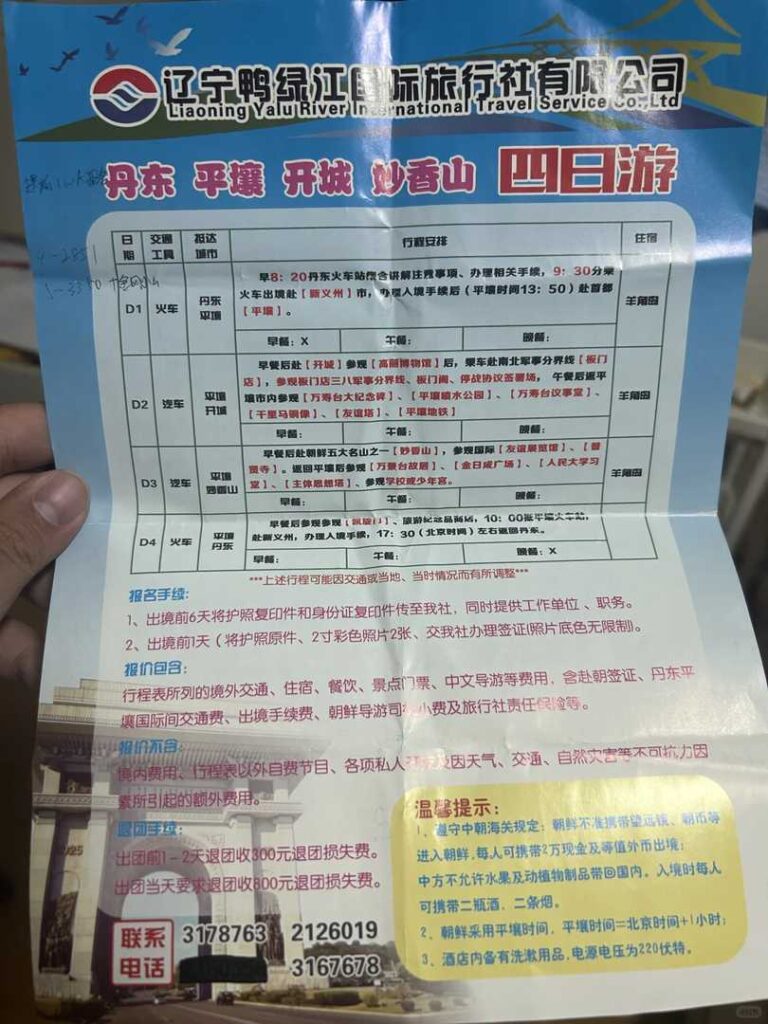 辽宁鸭绿江国际旅行社有限公司
Liaoning Yalu River International Travel Service Co.,Ltd
丹东 平壤 开城 妙香山 四日游
日期 交通工具 抵达城市 行程安排 住宿
D1 火车 丹东平壤 羊角岛
早8：20丹东火车站集合讲解注意事项、办理相关手续，9：30分乘
火车出境赴【新义州】市，办理入境手续后（平壤时间13：50）赴首都
【平壤】。
早餐：X 午餐： 晚餐：
D2 汽车 平壤开城 羊角岛
早餐后赴【开城】参观【高丽博物馆】后，乘车赴南北军事分界线【板门
店】，参观板门店三八军事分界线、板门阁、停战协议签署场，午餐后返平
壤市内参观【万寿台大纪念碑】、【平壤喷水公园】、【万寿台议事堂】、
【千里马铜像】、【友谊塔】、【平壤地铁】
早餐： 午餐： 晚餐：
D3 汽车 平壤妙香山 羊角岛
早餐后赴朝鲜五大名山之一【妙香山】，参观国际【友谊展览馆】、【普
贤寺】。返回平壤后参观【万景台故居】、【金日成广场】、【人民大学习
堂】、【主体思想塔】、参观学校或少年宫。
早餐： 午餐： 晚餐：
D4 火车 平壤丹东
早餐后参观参观【凯旋门】、旅游纪念品商店，10：00张平壤火车站，
赴新义州，办理入境手续，17：30（北京时间）左右返回丹东。
早餐： 午餐： 晚餐：X
***上述行程可能因交通或当地、当时情况而有所调整***
报名手续：
1、出境前6天将护照复印件和身份证复印件传至我社，同时提供工作单位、职务。
2、出境前1天（将护照原件、2寸彩色照片2张、交我社办理签证(照片底色无限制)。
报价包含：
行程表所列的境外交通、住宿、餐饮、景点门票、中文导游等费用，含赴朝签证、丹东平
壤国际间交通费、出境手续费、朝鲜导游司机小费及旅行社责任保险等。
报价不含：
境内费用、行程表以外自费节目、各项私人 及因天气、交通、自然灾害等不可抗力因
素所引起的额外费用。
退团手续：
出团前1-2天退团收300元退团损失费。
出团当天要求退团收800元退团损失费。
联系电话
3178763 2126019
3167678
温馨提示：
1、遵守中朝海关规定：朝鲜不准携带望远镜、朝币等
进入朝鲜，每人可携带2万现金及等值外币出境；
中方不允许水果及动植物制品带回国内。入境时每人
可携带二瓶酒，二条烟。
2、朝鲜采用平壤时间，平壤时间=北京时间+1小时；
3、酒店内备有洗漱用品，电源电压为220伏特。